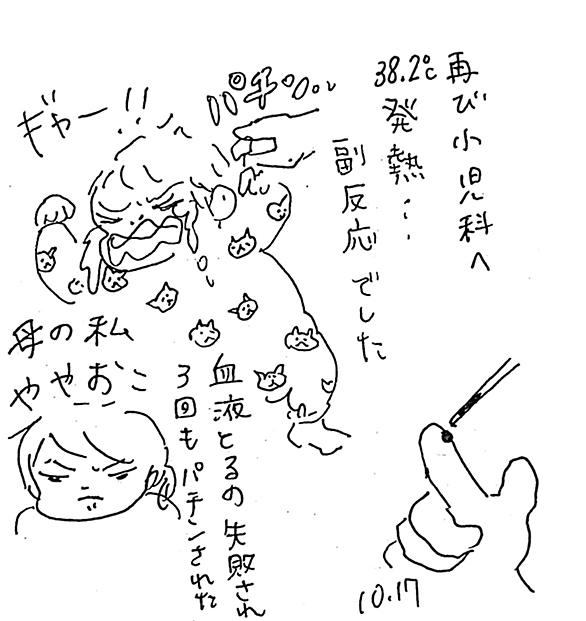 再び小児科へ
38.2℃
発熱…
副反応でした
パチン
ギャー!!
血液とるの失敗され
3回もパチンされた
母の私
ややおこ
10.17